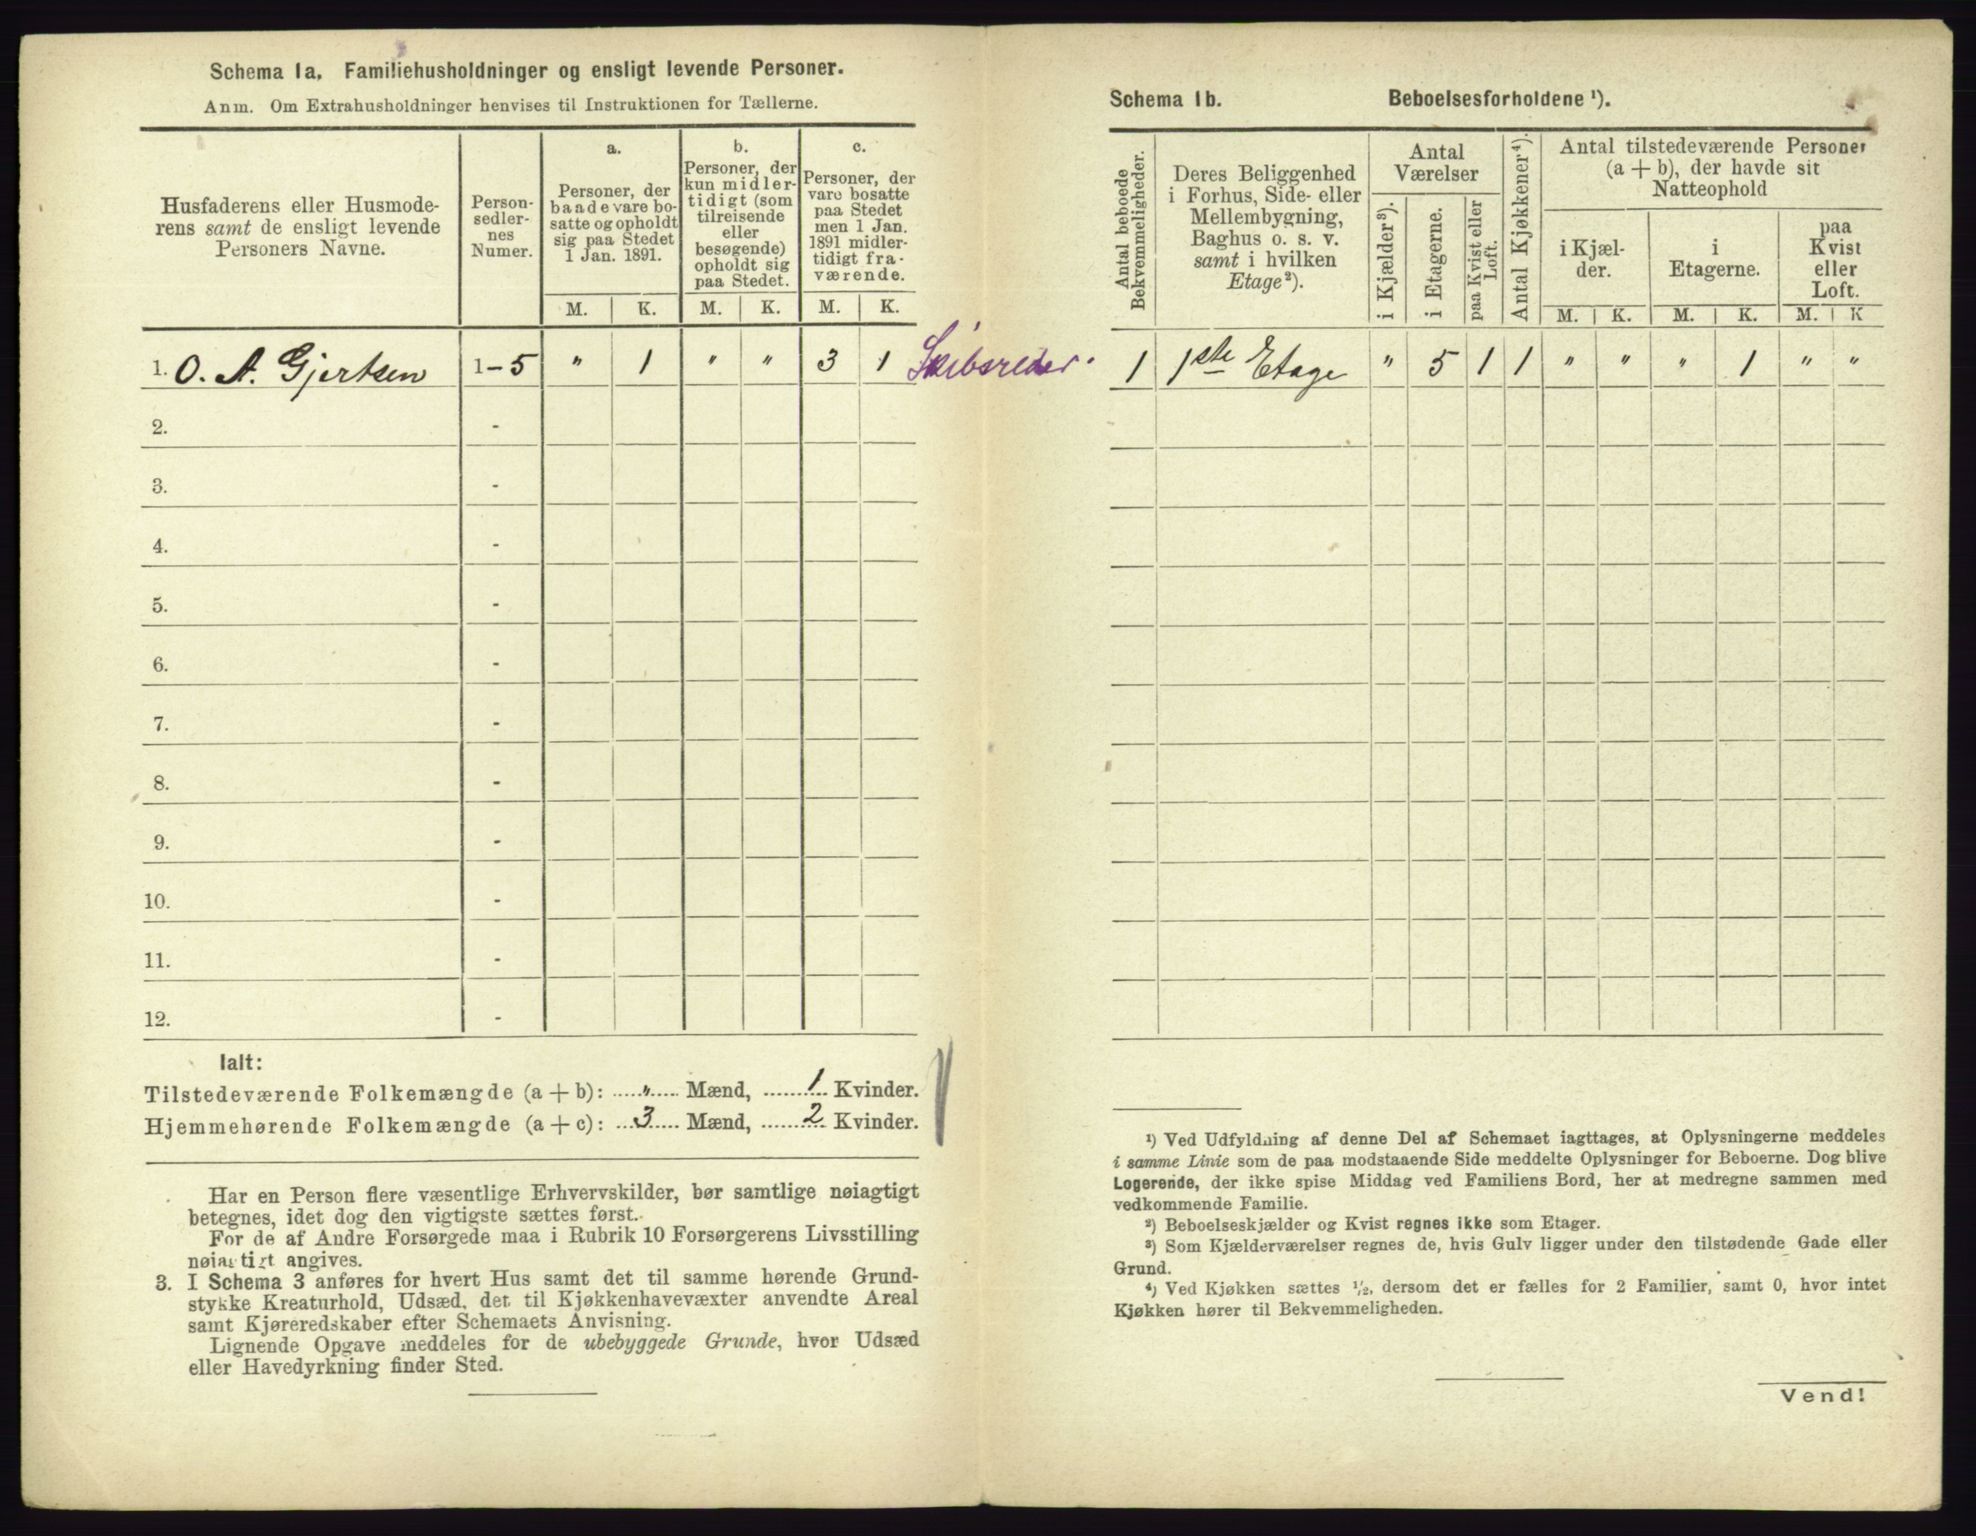 Schema 1a. Familiehusholdninger og ensligt levende Personer.
Anm. Om Extrahusholdninger henvises til Instruktionen for Tællerne.
Husfaderens eller Husmode-
rens samt de ensligt levende
Personers Navne.
Person-
sedler-
nes
Numer.
a.
Personer, der
baade vare bo-
satte og opholdt
sig paa Stedet
1 Jan. 1891.
M. K.
b.
Personer, der
kun midler-
tidigt (som
tilreisende
eller
besøgende)
opholdt sig
paa Stedet.
M. K.
c.
Personer, der
vare bosatte
paa Stedet
men 1 Jan.
1891 midler-
tidigt fra-
værende.
M. K.
1. O. A. Gjertsen 1-5 " 1 " " 3 1 Skibsreder
2. -
3. -
4. -
5. -
6. -
7. -
8. -
9. -
10. -
11. -
12. -
Ialt:
Tilstedeværende Folkemængde (a + b): " Mænd, 1 Kvinder.
Hjemmehørende Folkemængde (a + c): 3 Mænd, 2 Kvinder.
Har en Person flere væsentlige Erhvervskilder, bør samtlige nøiagtigt
betegnes, idet dog den vigtigste sættes først.
For de af Andre Forsørgede maa i Rubrik 10 Forsørgerens Livsstilling
nøiagtigt angives.
3. I Schema 3 anføres for hvert Hus samt det til samme hørende Grund-
stykke Kreaturhold, Udsæd, det til Kjøkkenhavevæxter anvendte Areal
samt Kjøreredskaber efter Schemaets Anvisning.
Lignende Opgave meddeles for de ubebyggede Grunde, hvor Udsæd
eller Havedyrkning finder Sted.
Schema 1b. Beboelsesforholdene ¹).
Antal beboede
Bekvemmeligheder.
Deres Beliggenhed
i Forhus, Side- eller
Mellembygning,
Baghus o. s. v.
samt i hvilken
Etage²).
Antal
Værelser
i Kjælder³).
i Etagerne.
paa Kvist eller
Loft.
Antal Kjøkkener⁴).
Antal tilstedeværende Personer
(a + b), der havde sit
Natteophold
i Kjæl-
der.
M. K.
i
Etagerne.
M. K.
paa
Kvist
eller
Loft.
M. K
1 1ste Etage " 5 1 1 " " " 1 " "
¹) Ved Udfyldning af denne Del af Schemaet iagttages, at Oplysningerne meddeles
i samme Linie som de paa modstaaende Side meddelte Oplysninger for Beboerne. Dog blive
Logerende, der ikke spise Middag ved Familiens Bord, her at medregne sammen med
vedkommende Familie.
²) Beboelseskjælder og Kvist regnes ikke som Etager.
³) Som Kjælderværelser regnes de, hvis Gulv ligger under den tilstødende Gade eller
Grund.
⁴) Ved Kjøkken sættes ½, dersom det er fælles for 2 Familier, samt 0, hvor intet
Kjøkken hører til Bekvemmeligheden.
Vend!